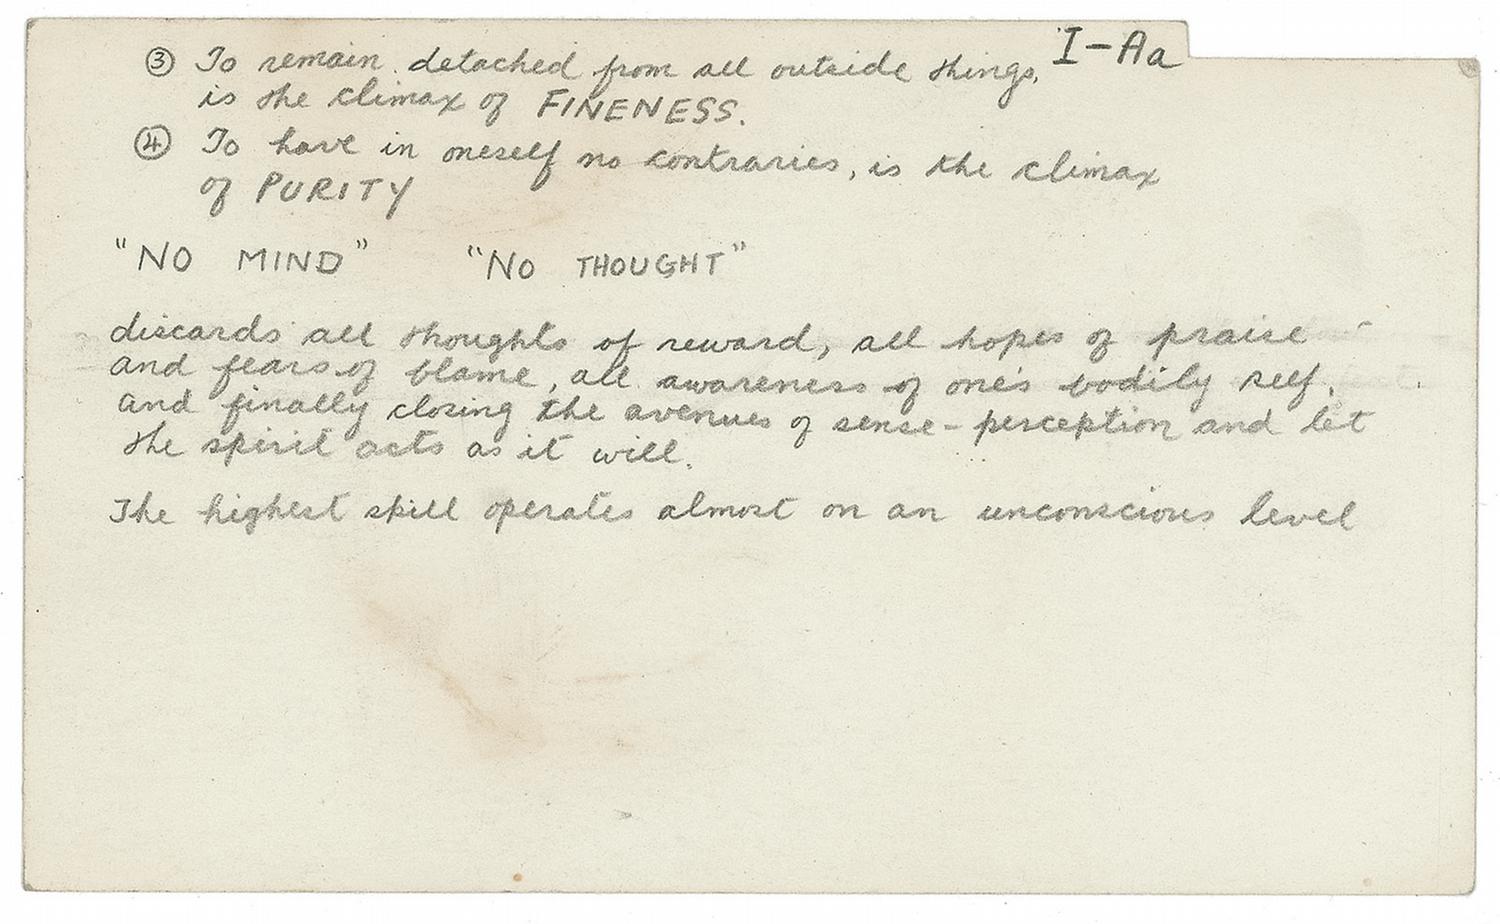 I-Aa
③ To remain detached from all outside things,
is the climax of FINENESS.
④ To have in oneself no contraries, is the climax
of PURITY
"NO MIND" "NO THOUGHT"
discards all thoughts of reward, all hopes of praise
and fears of blame, all awareness of one's bodily self,
and finally closing the avenues of sense-perception and let
the spirit acts as it will.
The highest skill operates almost on an unconscious level